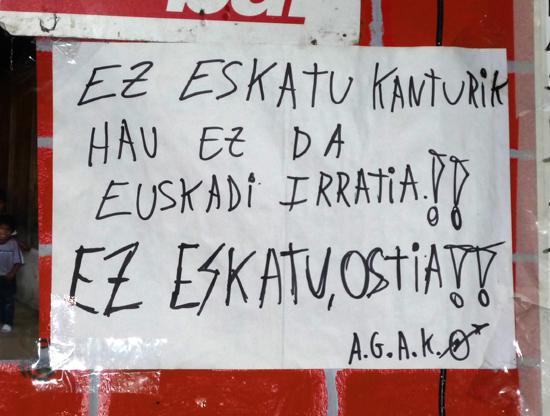 EZ ESKATU KANTURIK
HAU EZ DA
EUSKADI IRRATIA!!
EZ ESKATU, OSTIA!!
A.G.A.K.